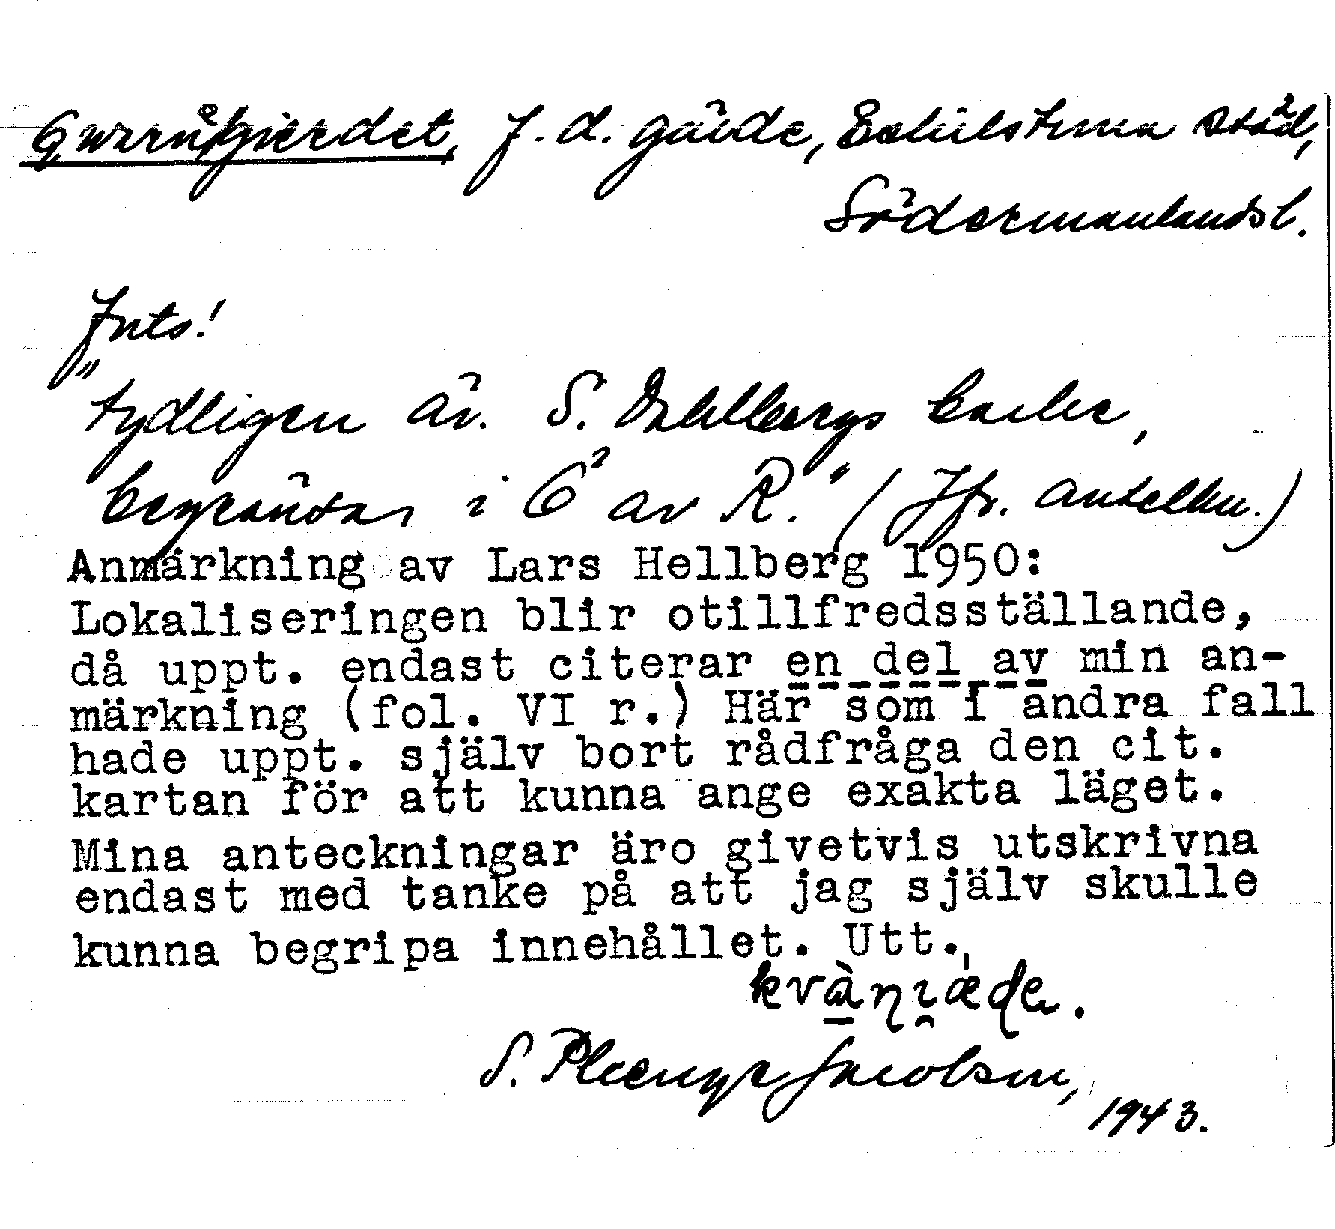 Qwarnegierdet, f. d. gärde, Eskilstuna stad,
Södermanlands l.
Ints!
"tydligen äv. S.
begränsar i Ö av R." (Jfr. anteckn.)
Anmärkning av Lars Hellberg 1950:
Lokaliseringen blir otillfredsställande,
då uppt. endast citerar en del av min an-
märkning (fol. VI r.) Här som i andra fall
hade uppt. själv bort rådfråga den cit.
kartan för att kunna ange exakta läget.
Mina anteckningar äro givetvis utskrivna
endast med tanke på att jag själv skulle
kunna begripa innehållet. Utt.
S.
1943.